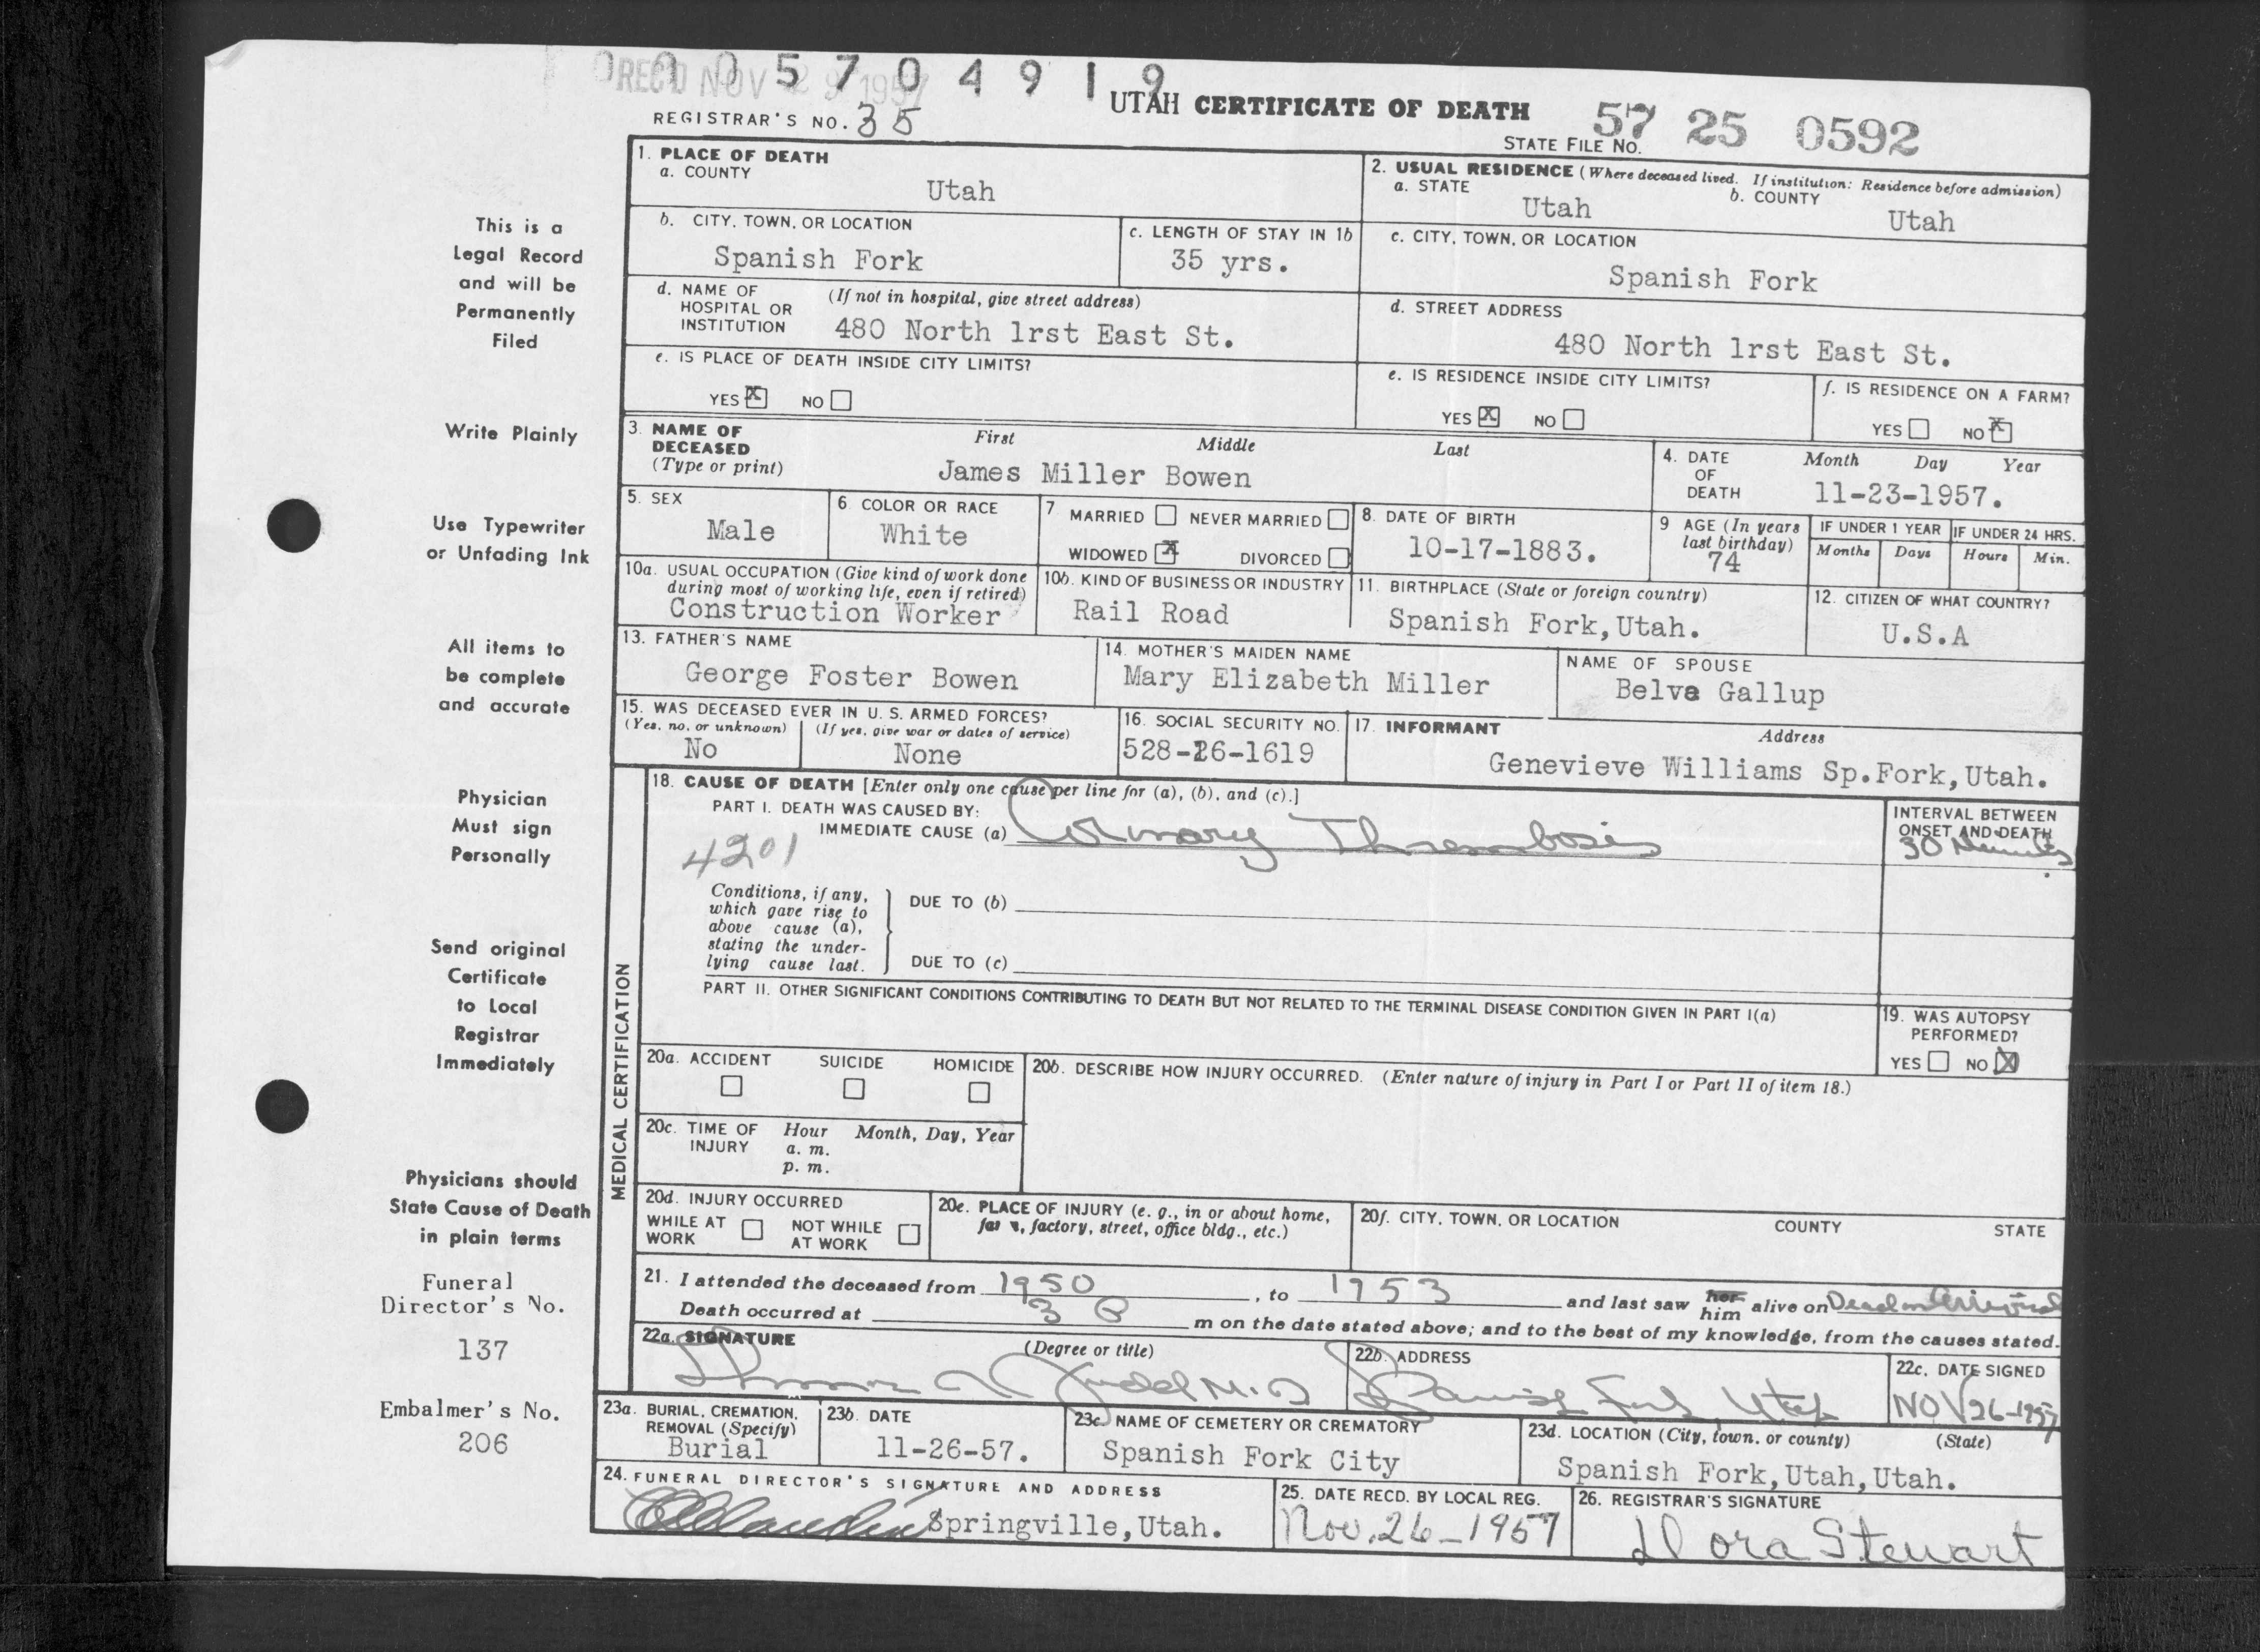 0 0 0 5 7 0 4 9 1 9
REC'D NOV 1957
UTAH CERTIFICATE OF DEATH
REGISTRAR'S NO. 35
STATE FILE NO. 57 25 0592
1. PLACE OF DEATH
a. COUNTY
Utah
2. USUAL RESIDENCE (Where deceased lived. If institution: Residence before admission)
a. STATE
Utah
b. COUNTY
Utah
b. CITY, TOWN, OR LOCATION
Spanish Fork
c. LENGTH OF STAY IN 1b
35 yrs.
c. CITY, TOWN, OR LOCATION
Spanish Fork
d. NAME OF HOSPITAL OR INSTITUTION
(If not in hospital, give street address)
480 North 1rst East St.
d. STREET ADDRESS
480 North 1rst East St.
e. IS PLACE OF DEATH INSIDE CITY LIMITS?
YES X NO
e. IS RESIDENCE INSIDE CITY LIMITS?
YES X NO
f. IS RESIDENCE ON A FARM?
YES NO X
3. NAME OF DECEASED
(Type or print)
First Middle Last
James Miller Bowen
4. DATE OF DEATH
Month Day Year
11-23-1957.
5. SEX
Male
6 COLOR OR RACE
White
7 MARRIED NEVER MARRIED
WIDOWED X DIVORCED
8. DATE OF BIRTH
10-17-1883.
9 AGE (In years last birthday)
74
IF UNDER 1 YEAR
Months Days
IF UNDER 24 HRS.
Hours Min.
10a. USUAL OCCUPATION (Give kind of work done during most of working life, even if retired)
Construction Worker
10b. KIND OF BUSINESS OR INDUSTRY
Rail Road
11. BIRTHPLACE (State or foreign country)
Spanish Fork, Utah.
12. CITIZEN OF WHAT COUNTRY?
U.S.A
13. FATHER'S NAME
George Foster Bowen
14. MOTHER'S MAIDEN NAME
Mary Elizabeth Miller
NAME OF SPOUSE
Belva Gallup
15. WAS DECEASED EVER IN U. S. ARMED FORCES?
(Yes, no, or unknown) (If yes, give war or dates of service)
No None
16. SOCIAL SECURITY NO.
528-26-1619
17. INFORMANT
Address
Genevieve Williams Sp.Fork, Utah.
MEDICAL CERTIFICATION
18. CAUSE OF DEATH [Enter only one cause per line for (a), (b), and (c).]
PART I. DEATH WAS CAUSED BY:
IMMEDIATE CAUSE (a) Coronary Thrombosis
4201
INTERVAL BETWEEN ONSET AND DEATH
30 Minutes
Conditions, if any, which gave rise to above cause (a), stating the underlying cause last.
DUE TO (b)
DUE TO (c)
PART II. OTHER SIGNIFICANT CONDITIONS CONTRIBUTING TO DEATH BUT NOT RELATED TO THE TERMINAL DISEASE CONDITION GIVEN IN PART I(a)
19. WAS AUTOPSY PERFORMED?
YES NO X
20a. ACCIDENT SUICIDE HOMICIDE
20b. DESCRIBE HOW INJURY OCCURRED. (Enter nature of injury in Part I or Part II of item 18.)
20c. TIME OF INJURY
Hour Month, Day, Year
a. m.
p. m.
20d. INJURY OCCURRED
WHILE AT WORK
NOT WHILE AT WORK
20e. PLACE OF INJURY (e. g., in or about home, factory, street, office bldg., etc.)
20f. CITY, TOWN, OR LOCATION COUNTY STATE
21. I attended the deceased from 1950, to 1953 and last saw her him alive on Dead on Arrival
Death occurred at 3 P m on the date stated above; and to the best of my knowledge, from the causes stated.
22a. SIGNATURE
(Degree or title)
M.D
22b. ADDRESS
Spanish Fork Utah
22c. DATE SIGNED
NOV 26-1957
23a. BURIAL, CREMATION, REMOVAL (Specify)
Burial
23b. DATE
11-26-57.
23c. NAME OF CEMETERY OR CREMATORY
Spanish Fork City
23d. LOCATION (City, town, or county) (State)
Spanish Fork, Utah, Utah.
24. FUNERAL DIRECTOR'S SIGNATURE AND ADDRESS
Springville, Utah.
25. DATE RECD. BY LOCAL REG.
Nov. 26-1957
26. REGISTRAR'S SIGNATURE
Dora Stewart
This is a
Legal Record
and will be
Permanently
Filed
Write Plainly
Use Typewriter
or Unfading Ink
All items to
be complete
and accurate
Physician
Must sign
Personally
Send original
Certificate
to Local
Registrar
Immediately
Physicians should
State Cause of Death
in plain terms
Funeral
Director's No.
137
Embalmer's No.
206